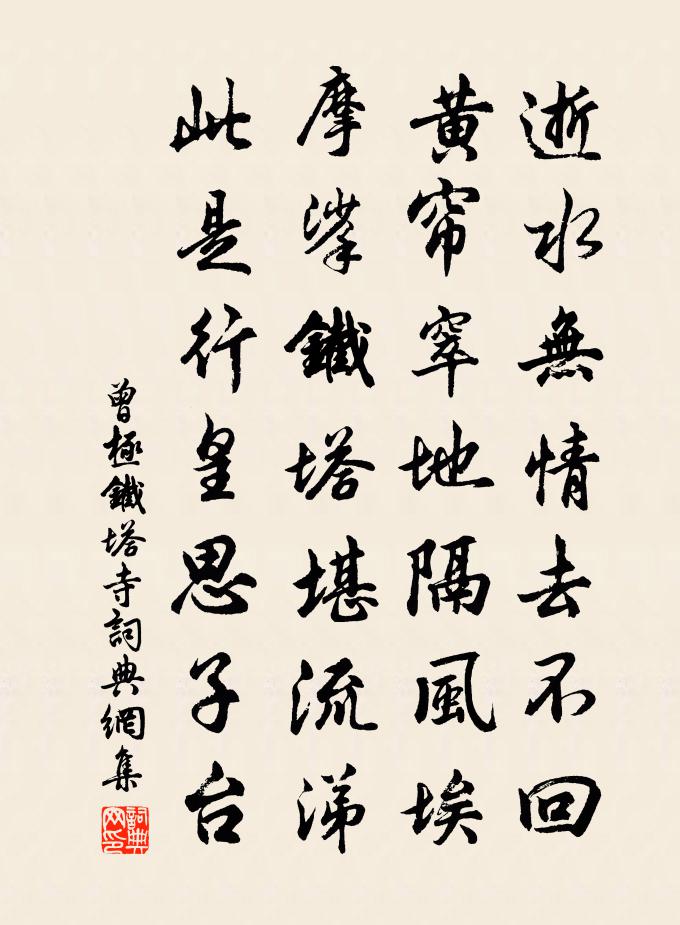 逝水無情去不回
黃帘窣地隔風埃
摩挲鐵塔堪流涕
此是行皇思子台
曾極鐵塔寺詞典網集
詞典网印